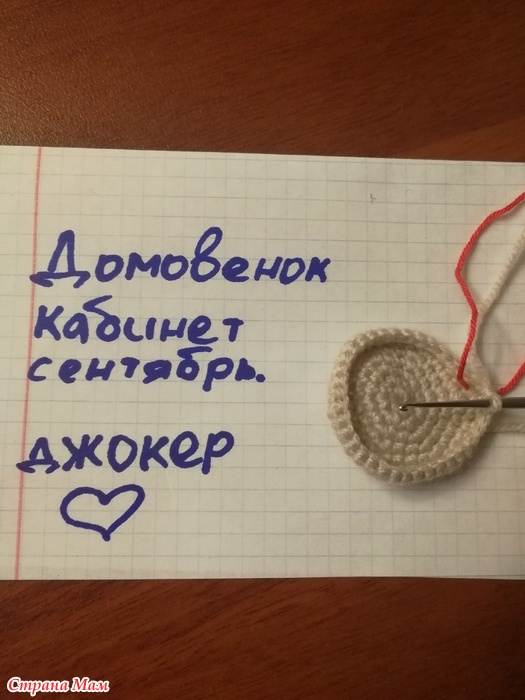 Домовенок
кабинет
сентябрь.
джокер
Страна Мам